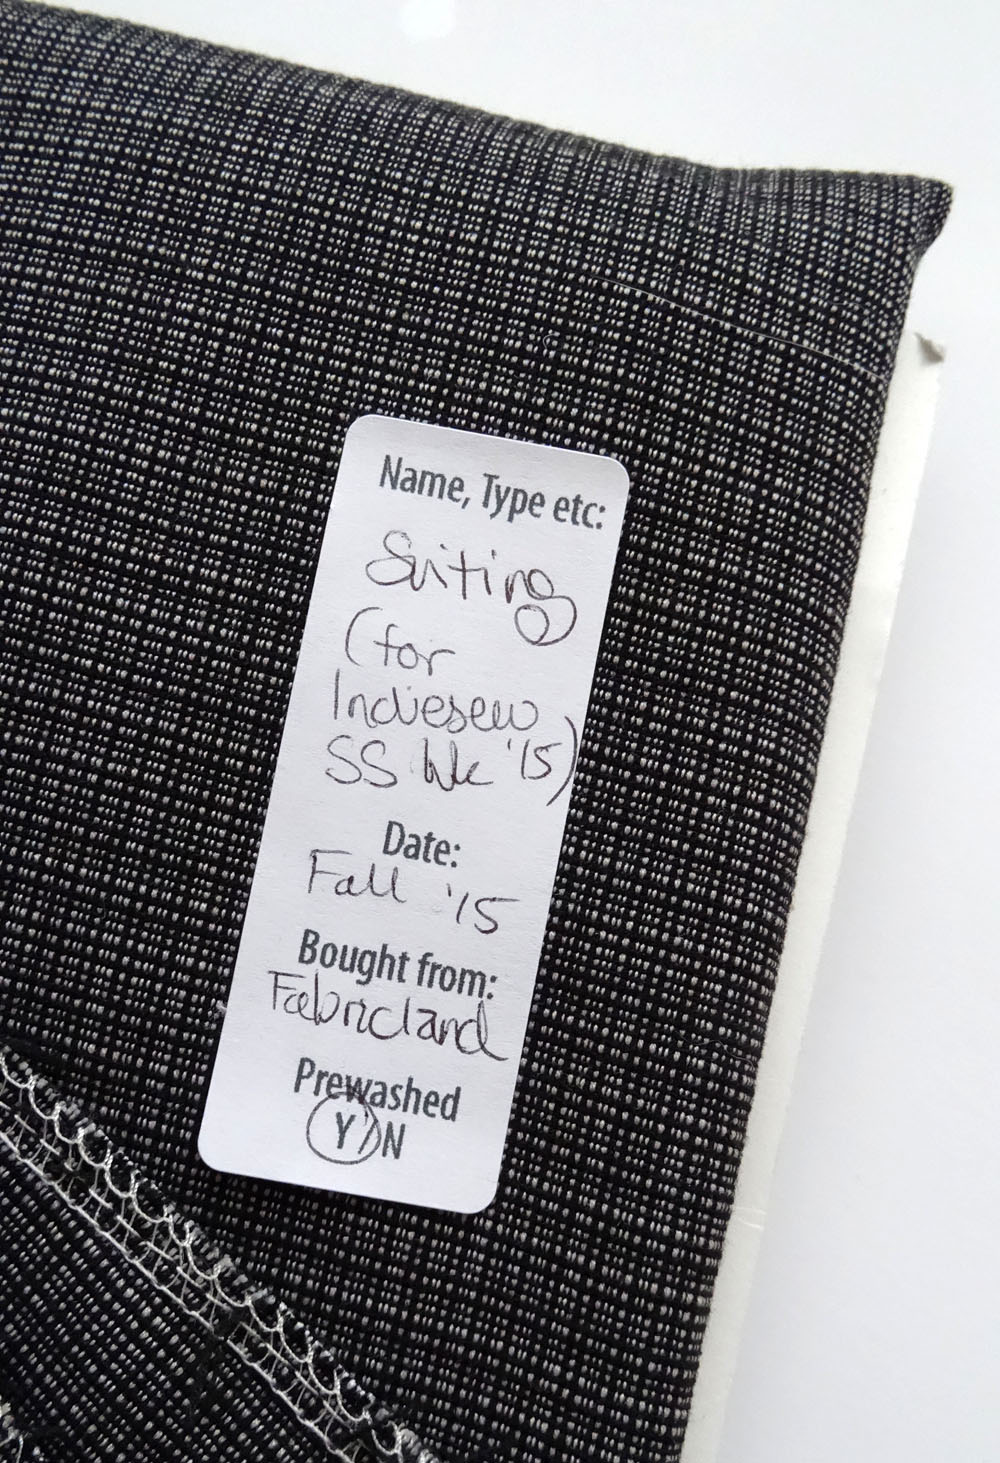 Name, Type etc:
Suiting
(for
Indiesew
SS Wk '15)
Date:
Fall '15
Bought from:
Fabricland
Prewashed
Y/N